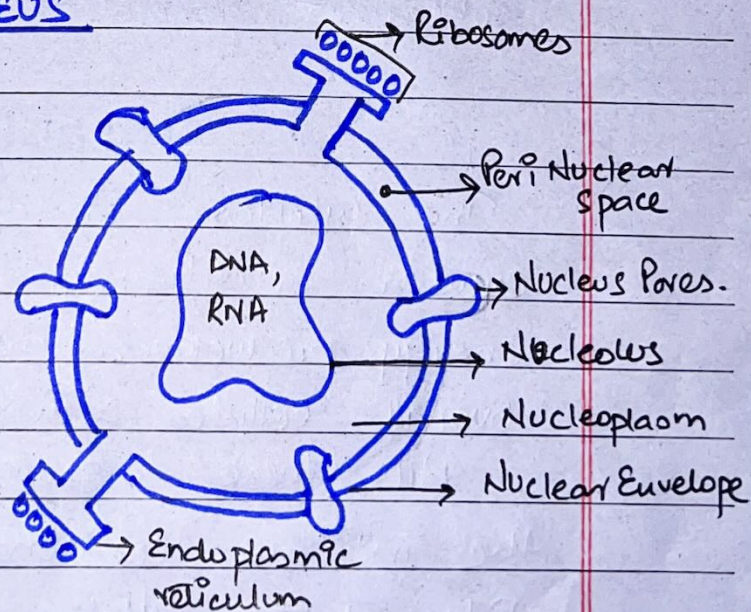 EUS
Ribosomes
Peri Nuclear
Space
DNA,
RNA
Nucleus Pores.
Nucleolus
Nucleoplasm
Nuclear Envelope
Endoplasmic
reticulum